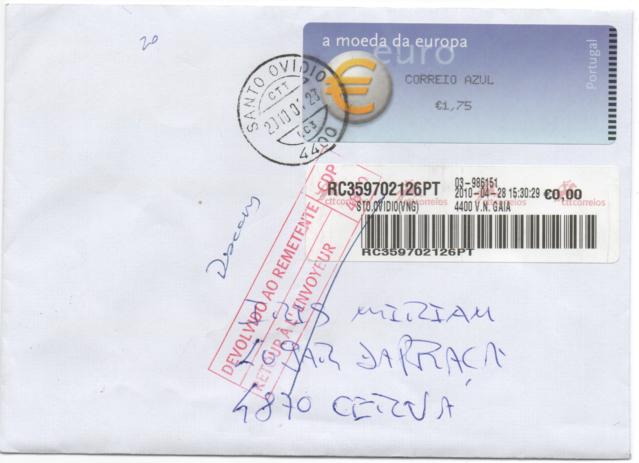 20
a moeda da europa
euro
Portugal
€
CORREIO AZUL
€1,75
SANTO OVIDIO
CTT
4400
RC359702126PT
03-986151
2010-04-28 15:30:29
€0.00
ctt correios
STO.OVIDIO(VNG)
4400 V.N. GAIA
ctt correios
RC359702126PT
DEVOLVIDO AO REMETENTE - CDP
RETOUR À L'ENVOYEUR
MIRIAM
4870 CERVA